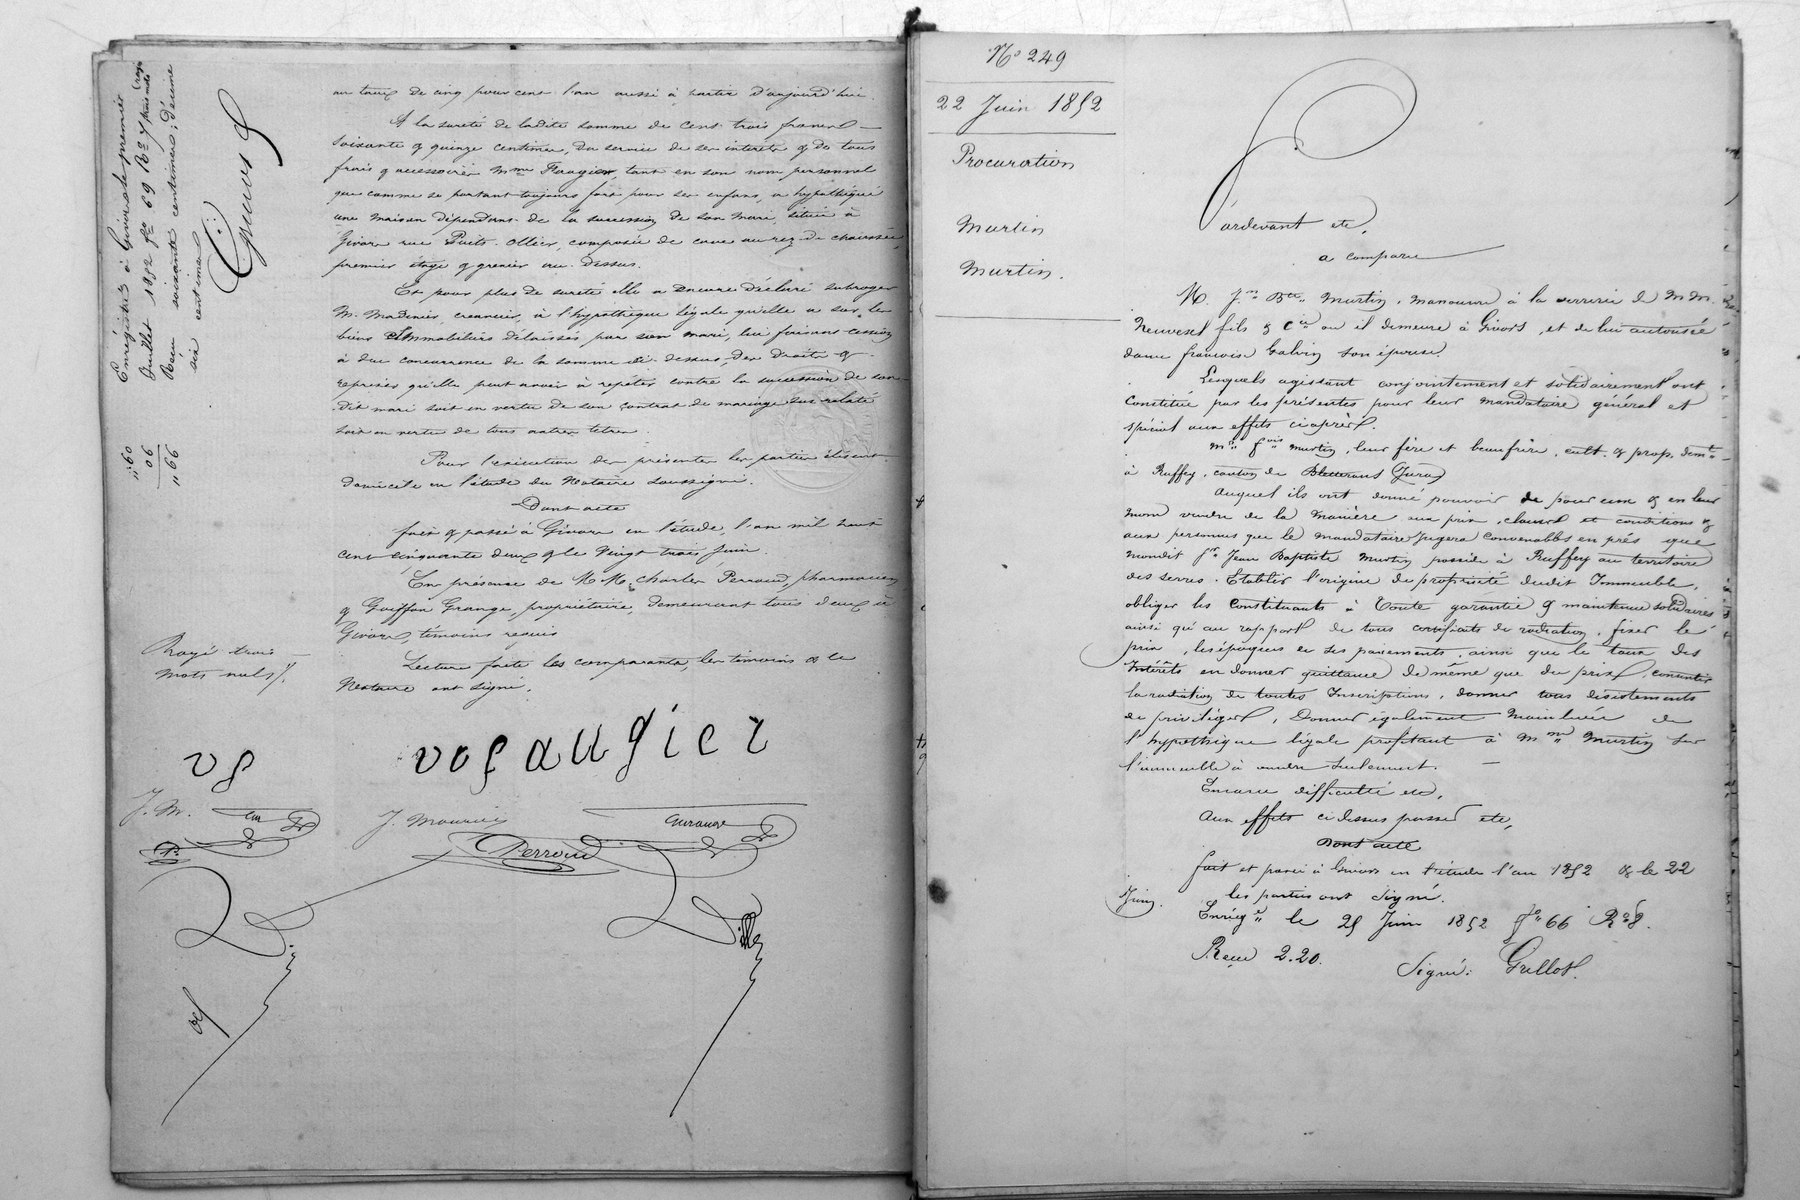 au taux de cinq pour cent l'an aussi à partir d'aujourd'hui.
A la sureté de ladite somme de cent trois francs
soixante & quinze centimes, du service de ses intérêts & de tous
frais & accessoires Mme Faugier, tant en son nom personnel
que comme se portant toujours fort pour ses enfans, a hypothéqué
une maison dépendant de la succession de son mari, située à
Givors rue Puits-Ollier, composée de cave au rez-de-chaussée,
premier étage & grenier au-dessus.
Et pour plus de sureté elle a encore déclaré subroger
M. , créancier, à l'hypothèque légale qu'elle a sur les
biens immobiliers délaissés par son mari, lui faisant cession
à due concurrence de la somme ci-dessus, des droits &
reprises qu'elle peut avoir à répéter contre la succession de son
dit mari soit en vertu de son contrat de mariage sus relaté
soit en vertu de tous autres titres.
Pour l'exécution des présentes les parties élisent
domicile en l'étude du Notaire soussigné.
Dont acte
fait & passé à Givors en l'étude, l'an mil huit
cent cinquante deux & le vingt trois Juin.
En présence de M.M. Charles Perroud, pharmacien
& Goiffon Grange, propriétaire, demeurant tous deux à
Givors, témoins requis
Lecture faite les comparants, les témoins & le
Notaire ont signé.
Rayé trois
mots nuls
vf
vofaugier
J. M.
J.
Perroud
Enregistré à Givors le premier
Juillet 1852 fo 69 Ro
Reçu soixante centimes; décime
six centimes
"60
06
"66
No 249
22 Juin 1852
Procuration
Martin
Martin.
Pardevant etc,
a comparu
M. Jn Bte Martin, manœuvre à la verrerie de MM.
Neuvesel fils & Cie où il demeure à Givors, et de lui autorisée
dame françoise Galvin son épouse.
Lesquels agissant conjointement et solidairement ont
constitué par les présentes pour leur mandataire général et
spécial aux effets ciaprès.
Mr fois Martin, leur fère et beaufrère, cult. & prop. demt
à Ruffey, canton de Bletterans Jura
auquel ils ont donné pouvoir de pour eux & en leur
nom vendre de la manière aux prix, clauses et conditions &
aux personnes que le mandataire jugera convenables un prés que
mondit sr Jean Baptiste Martin possède à Ruffey au territoire
des serves. Etablir l'origine de propriété dudit Immeuble,
obliger les constituants à toute garantie & maintenue solidaires
ainsi qu'au rapport de tous certificats de radiation, fixer le
prix, les époques de ses payements, ainsi que le taux des
Intérêts en donner quittance de même que du prix, consentir
la radiation de toutes Inscriptions, donner tous désistements
de privilèges, Donner également Mainlevée de
l'hypothèque légale profitant à Mme Martin sur
l'immeuble à vendre seulement.
En cas difficulté etc,
Aux effets ci dessus passer etc,
Dont acte
fait et passé à Givors en l'étude l'an 1852 & le 22
Juin. les parties ont signé.
Enregé le 25 Juin 1852 fo 66 Ro 8.
Reçu 2.20.
Signé: Grillot.